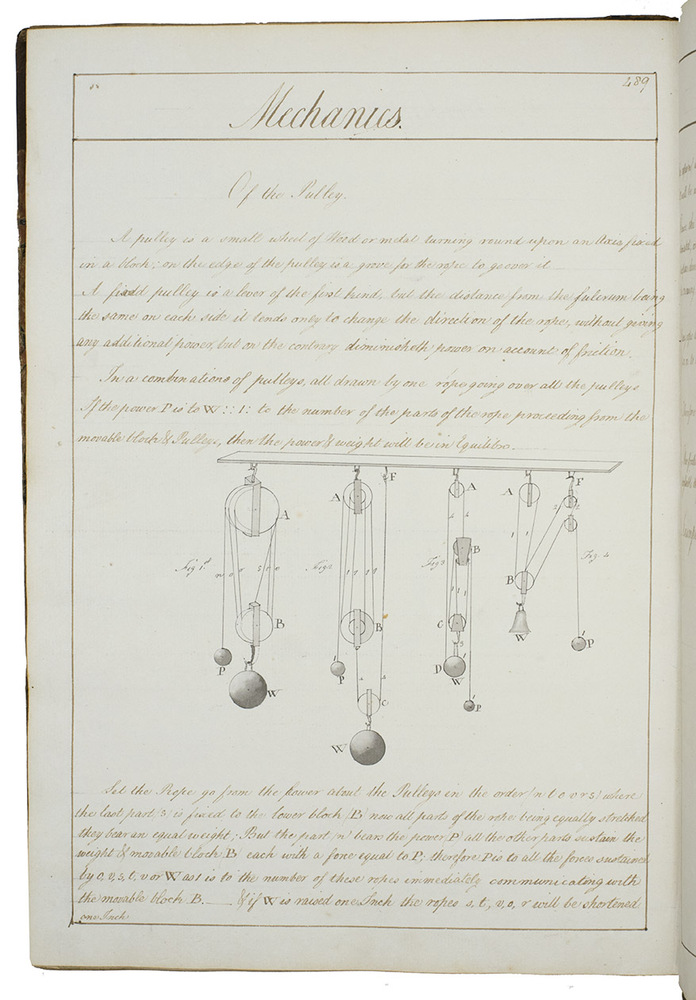 489
Mechanics.
Of the Pulley.
A pulley is a small wheel of Wood or metal turning round upon an Axis fixed
in a block; on the edge of the pulley is a grove for the rope to go over it
A fixed pulley is a lever of the first kind, but the distance from the fulcrum being
the same on each side it tends only to change the direction of the rope, without giving
any additional power, but on the contrary diminisheth power on account of friction.
In a combinations of pulleys, all drawn by one rope going over all the pulleys
If the power P is to W :: 1: to the number of the parts of the rope proceeding from the
movable block & Pulleys, then the power & weight will be in Equilibro.
F F
A A A A
B
Fig 1st Fig 2 Fig 3 Fig. 4
B
B B C
P P D W P
W W P
C
W
Let the Rope go from the power about the Pulleys in the order (n t o v r s) where
the last part (s) is fixed to the lower block (B) now all parts of the rope being equally stretched
they bear an equal weight; But the part n bears the power P all the other parts sustain the
weight & movable block B each with a force equal to P; therefore P is to all the forces sustained
by o, r, s, t, v or W as 1 is to the number of these ropes immediately communicating with
the movable block B. & if W is raised one Inch the ropes s, t, v, o, r will be shortened
one Inch